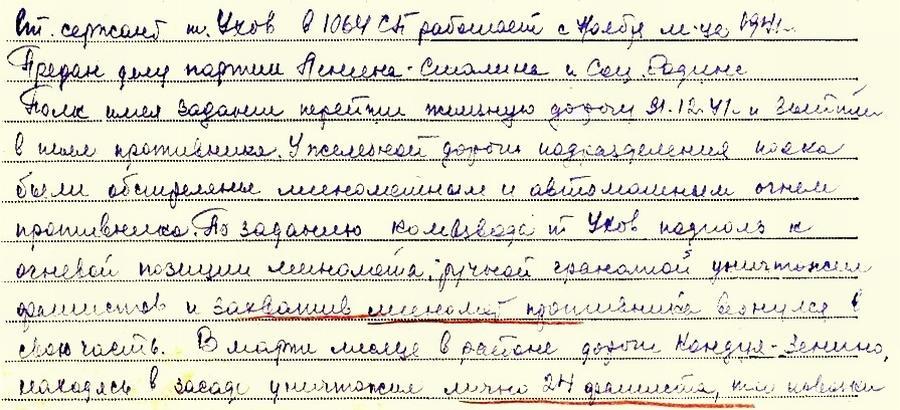 Ст. сержант т. Ухов в 1064 СП работает с Ноября м-ца 1941г.
Предан делу партии Ленина-Сталина и Соц. Родине
Полк имея задании перейти железную дорогу 31.12.41 и зайти
в тыл противника. У железной дороги подразделения полка
были обстреляны минометным и автоматным огнем
противника. По заданию комвзвода т Ухов подполз к
огневой позиции миномета, ручной гранатой уничтожил
фашистов и захватив миномет противника вернулся в
свою часть. В марте месяце в районе дороги Кондуя-Зенино,
находясь в засаде уничтожил лично 24 фашиста, три повозки